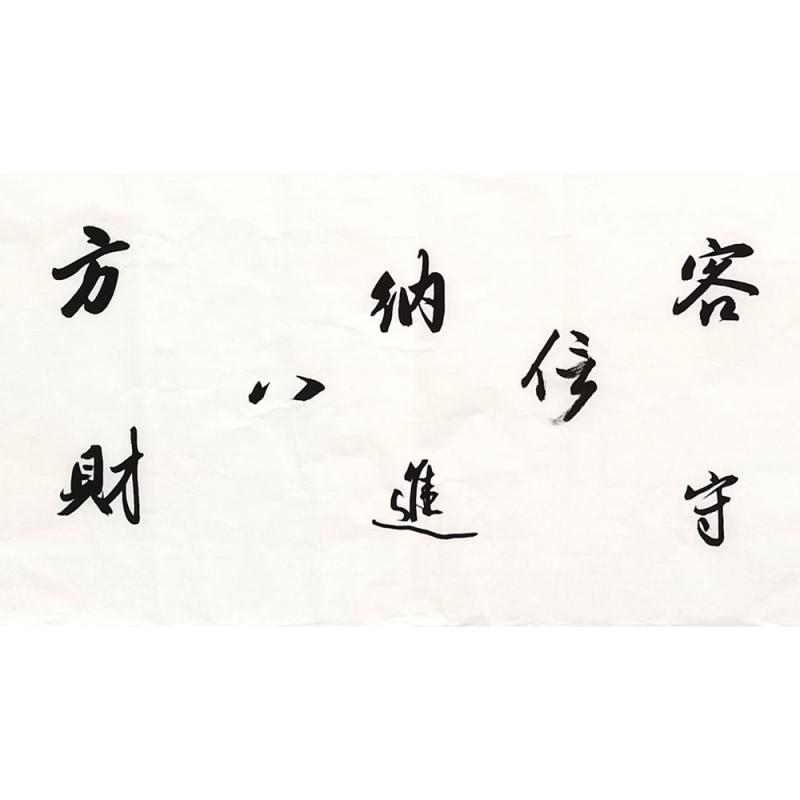 客守
信
納進
八
方財